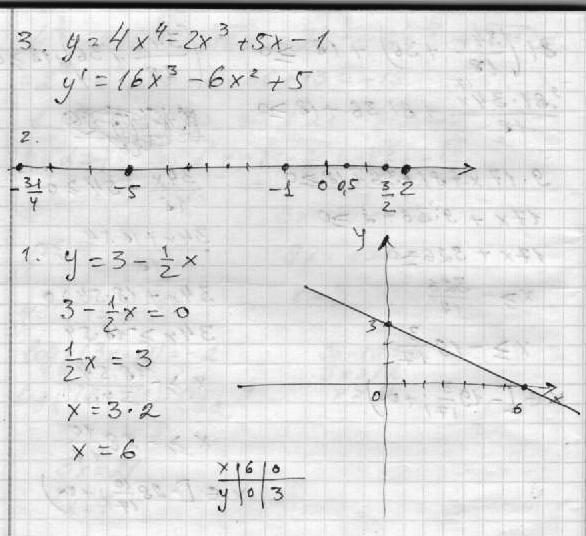 3. y = 4x⁴ - 2x³ + 5x - 1
y' = 16x³ - 6x² + 5
2.
-31/4 -5 -1 0 0,5 3/2 2
1. y = 3 - 1/2 x
3 - 1/2 x = 0
1/2 x = 3
x = 3 · 2
x = 6
x | 6 | 0
y | 0 | 3
y
3
0 6 x